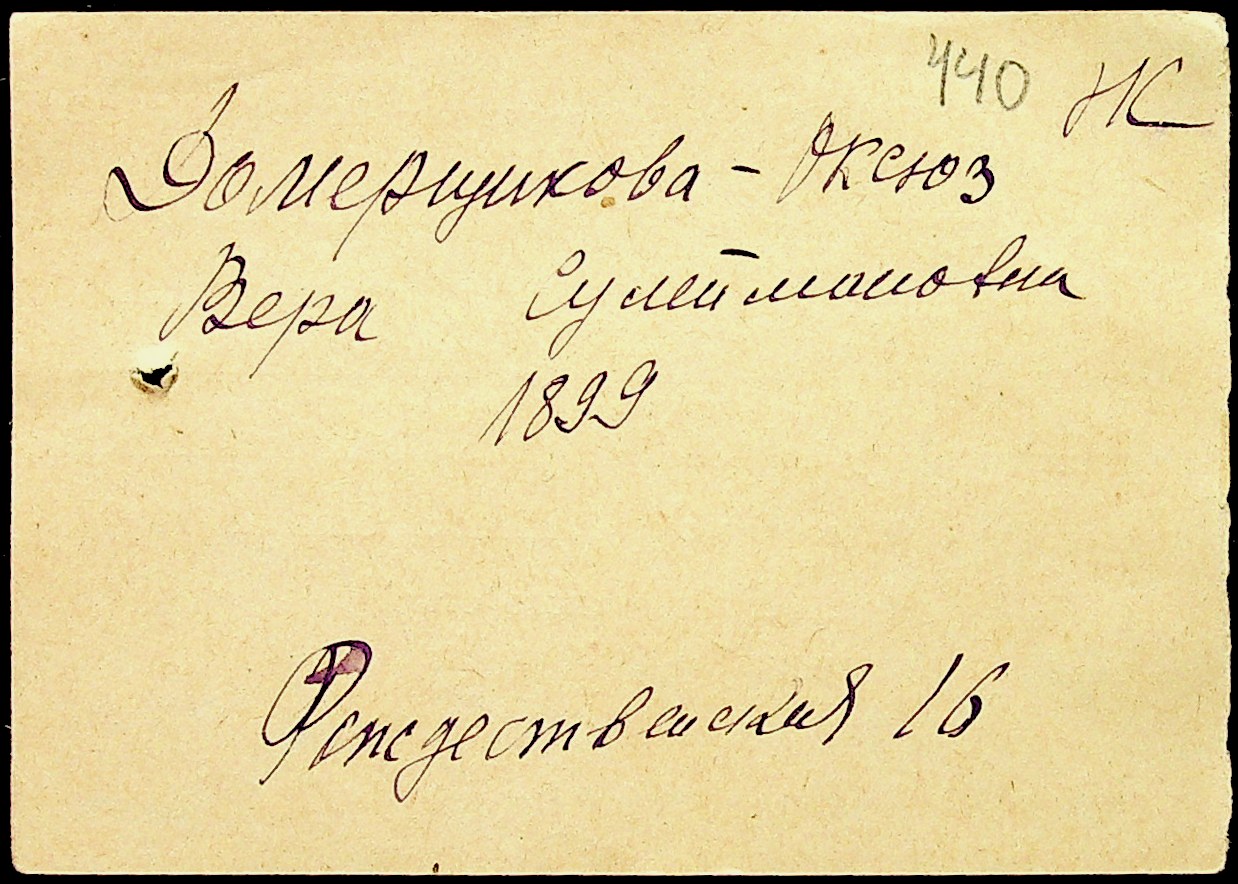 440 Ж
Домерщикова - Оксюз
Вера Сулеймановна
1899
Рождественская 16